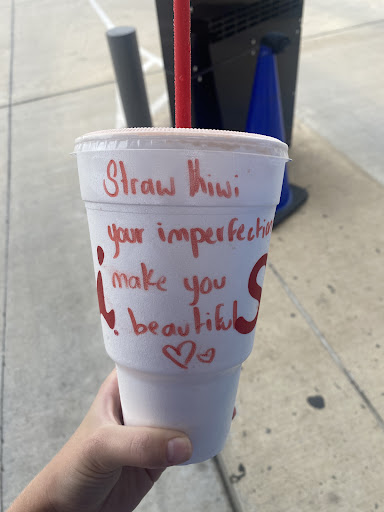 Straw Kiwi
your imperfection
make you
beautiful